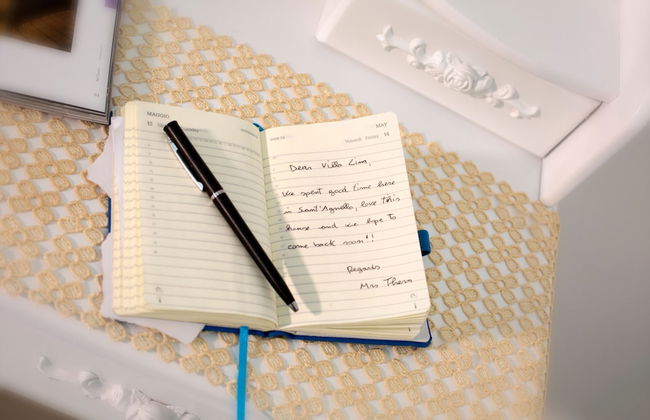 MAGGIO
13
MAY
Venerdì Friday 14
Dear Villa Lina,
We spent good time here
in Sant'Agnello, love this
house and we hope to
come back soon!!
Regards
Mrs Theresa